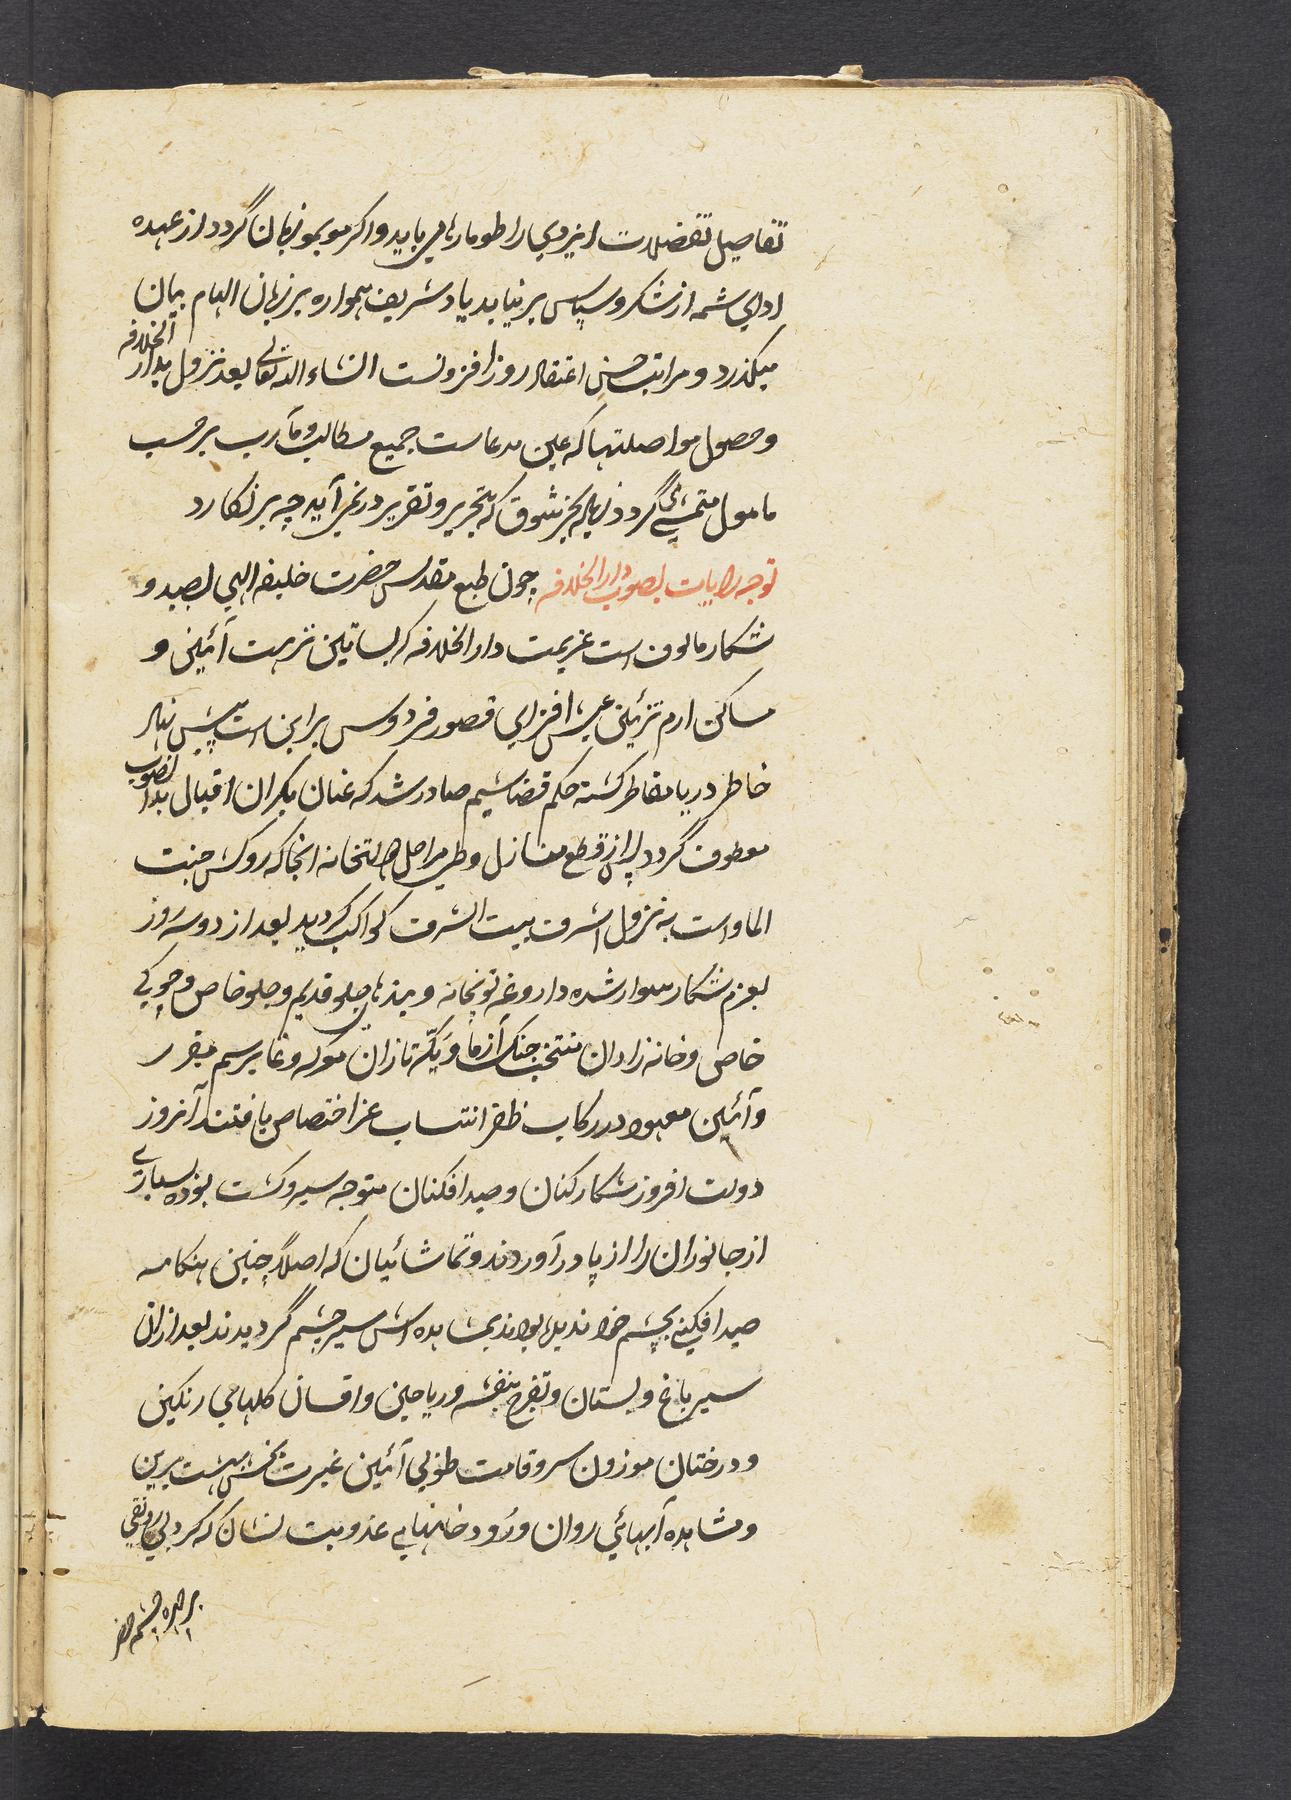 تفاصیل تفضلات ایزدی را طومارهای باید و اگر موبمو زبان گردد از عهده
ادای شمه از شکر و سپاس برنیاید یاد شریف همواره بر زبان الهام بیان
میگذرد و مراتب حسن اعتقاد روزافزونست انشاء الله تعالی بعد نزول بدار الخلافه
و حصول مواصلتها که عین مدعاست جمیع مطالب و مآرب بر حسب
مامول متمشی گردد زیاده بجز شوق که بتحریر و تقریر در نمی آید چه بر نگارد
توجه رایات بصوب دار الخلافه چون طبع مقدس حضرت خلیفه الهی بصید و
شکار مالوف است عزیمت دار الخلافه که بساتین نزهت آئین و
مساکن ارم تزئین عیش افزای قصور فردوس برین است پیش نهاد
خاطر دریا مقاطر گشته حکم قضا شیم صادر شد که عنان یکران اقبال بدانصوب
معطوف گردد پس از قطع منازل و طی مراحل دولتخانه انجا که روکش جنت
الماواست به نزول اشرف بیت الشرف کواکب گردید بعد از دو سه روز
بعزم شکار سوار شده داروغه توپخانه و بندهای جلو قدیم و جلو خاص و چوکی
خاص و خانه زادان منتخب جنگ آزما و یکه تازان معرکه وغا برسم مقرر
و آئین معهود در رکاب ظفر انتساب عز اختصاص یافتند آنروز
دولت افروز شکار کنان و صید افکنان متوجه سیر و گشت بوده بسیاری
از جانوران را از پا در آوردند و تماشائیان که اصلا چنین هنگامه
صید افکنی بچشم خود ندیده بودند بمشاهده اش سیر چشم گردیدند بعد ازان
سیر باغ و بستان و تفرج بنفشه و ریاحین و اقسام گلهای رنگین
و درختان موزون سرو قامت طوبی آئین غیرت بخش بهشت برین
و مشاهده آبهائی روان و رود خانهایی عذوبت نشان که گرد بی رونقی
بر چهره چشمه خضر